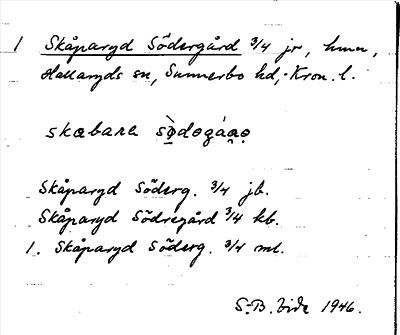 1 Skåparyd Södergård 3/4 jr, hmn,
Hallaryds sn, Sunnerbo hd, Kron. l.
skæbara
Skåparyd Söderg. 3/4 jb.
Skåparyd Södregård 3/4 kb.
1. Skåparyd Söderg. 3/4 ml.
S.-B. Vide 1946.